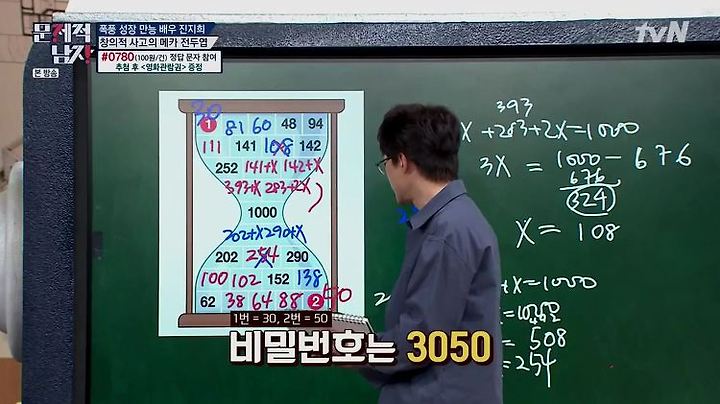 문제적 남자
본 방송
폭풍 성장 만능 배우 진지희
창의적 사고의 메카 전두엽
#0780(100원/건) 정답 문자 참여
추첨 후 <영화관람권> 증정
tvN
30
1 81 60 48 94
111 141 108 142
252 141+x 142+x
393+x 283+2x
1000
202+x 290+x
202 254 290
100 102 152 138
62 38 64 88 2 50
393
x+283+2x=1000
3x = 1000-676
676
324
x = 108
+x=1000
= 508
= 254
1번 = 30, 2번 = 50
비밀번호는 3050